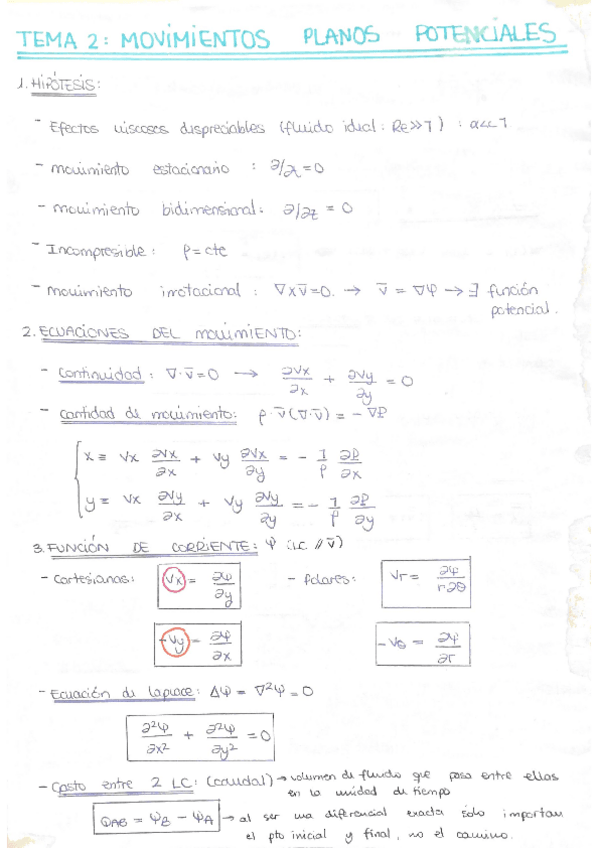 TEMA 2: MOVIMIENTOS PLANOS POTENCIALES
1. HIPÓTESIS:
- Efectos viscosos despreciables (fluido ideal: Re>>1) : α<<1
- movimiento estacionario : ∂/∂t = 0
- movimiento bidimensional: ∂/∂z = 0
- Incompresible: ρ = cte
- movimiento irrotacional : ∇x v̄=0. → v̄ = ∇φ → ∃ función
potencial.
2. ECUACIONES DEL movimiento:
- Continuidad: ∇·v̄=0 → ∂vx/∂x + ∂vy/∂y = 0
- cantidad de movimiento: ρ·v̄(∇·v̄) = -∇P
x ≡ vx ∂vx/∂x + vy ∂vx/∂y = - 1/ρ ∂P/∂x
y ≡ vx ∂vy/∂x + vy ∂vy/∂y = - 1/ρ ∂P/∂y
3. FUNCIÓN DE CORRIENTE: ψ (LC // v̄)
- cartesianas: vx = ∂ψ/∂y - Polares: vr = ∂ψ/r∂θ
-vy = ∂ψ/∂x -vθ = ∂ψ/∂r
- Ecuación de laplace: Δψ = ∇²ψ = 0
∂²ψ/∂x² + ∂²ψ/∂y² = 0
- Gasto entre 2 LC: (caudal) → volumen de fluido que pasa entre ellas
en la unidad de tiempo
QAB = ψB - ψA → al ser una diferencial exacta solo importan
el pto inicial y final, no el camino.